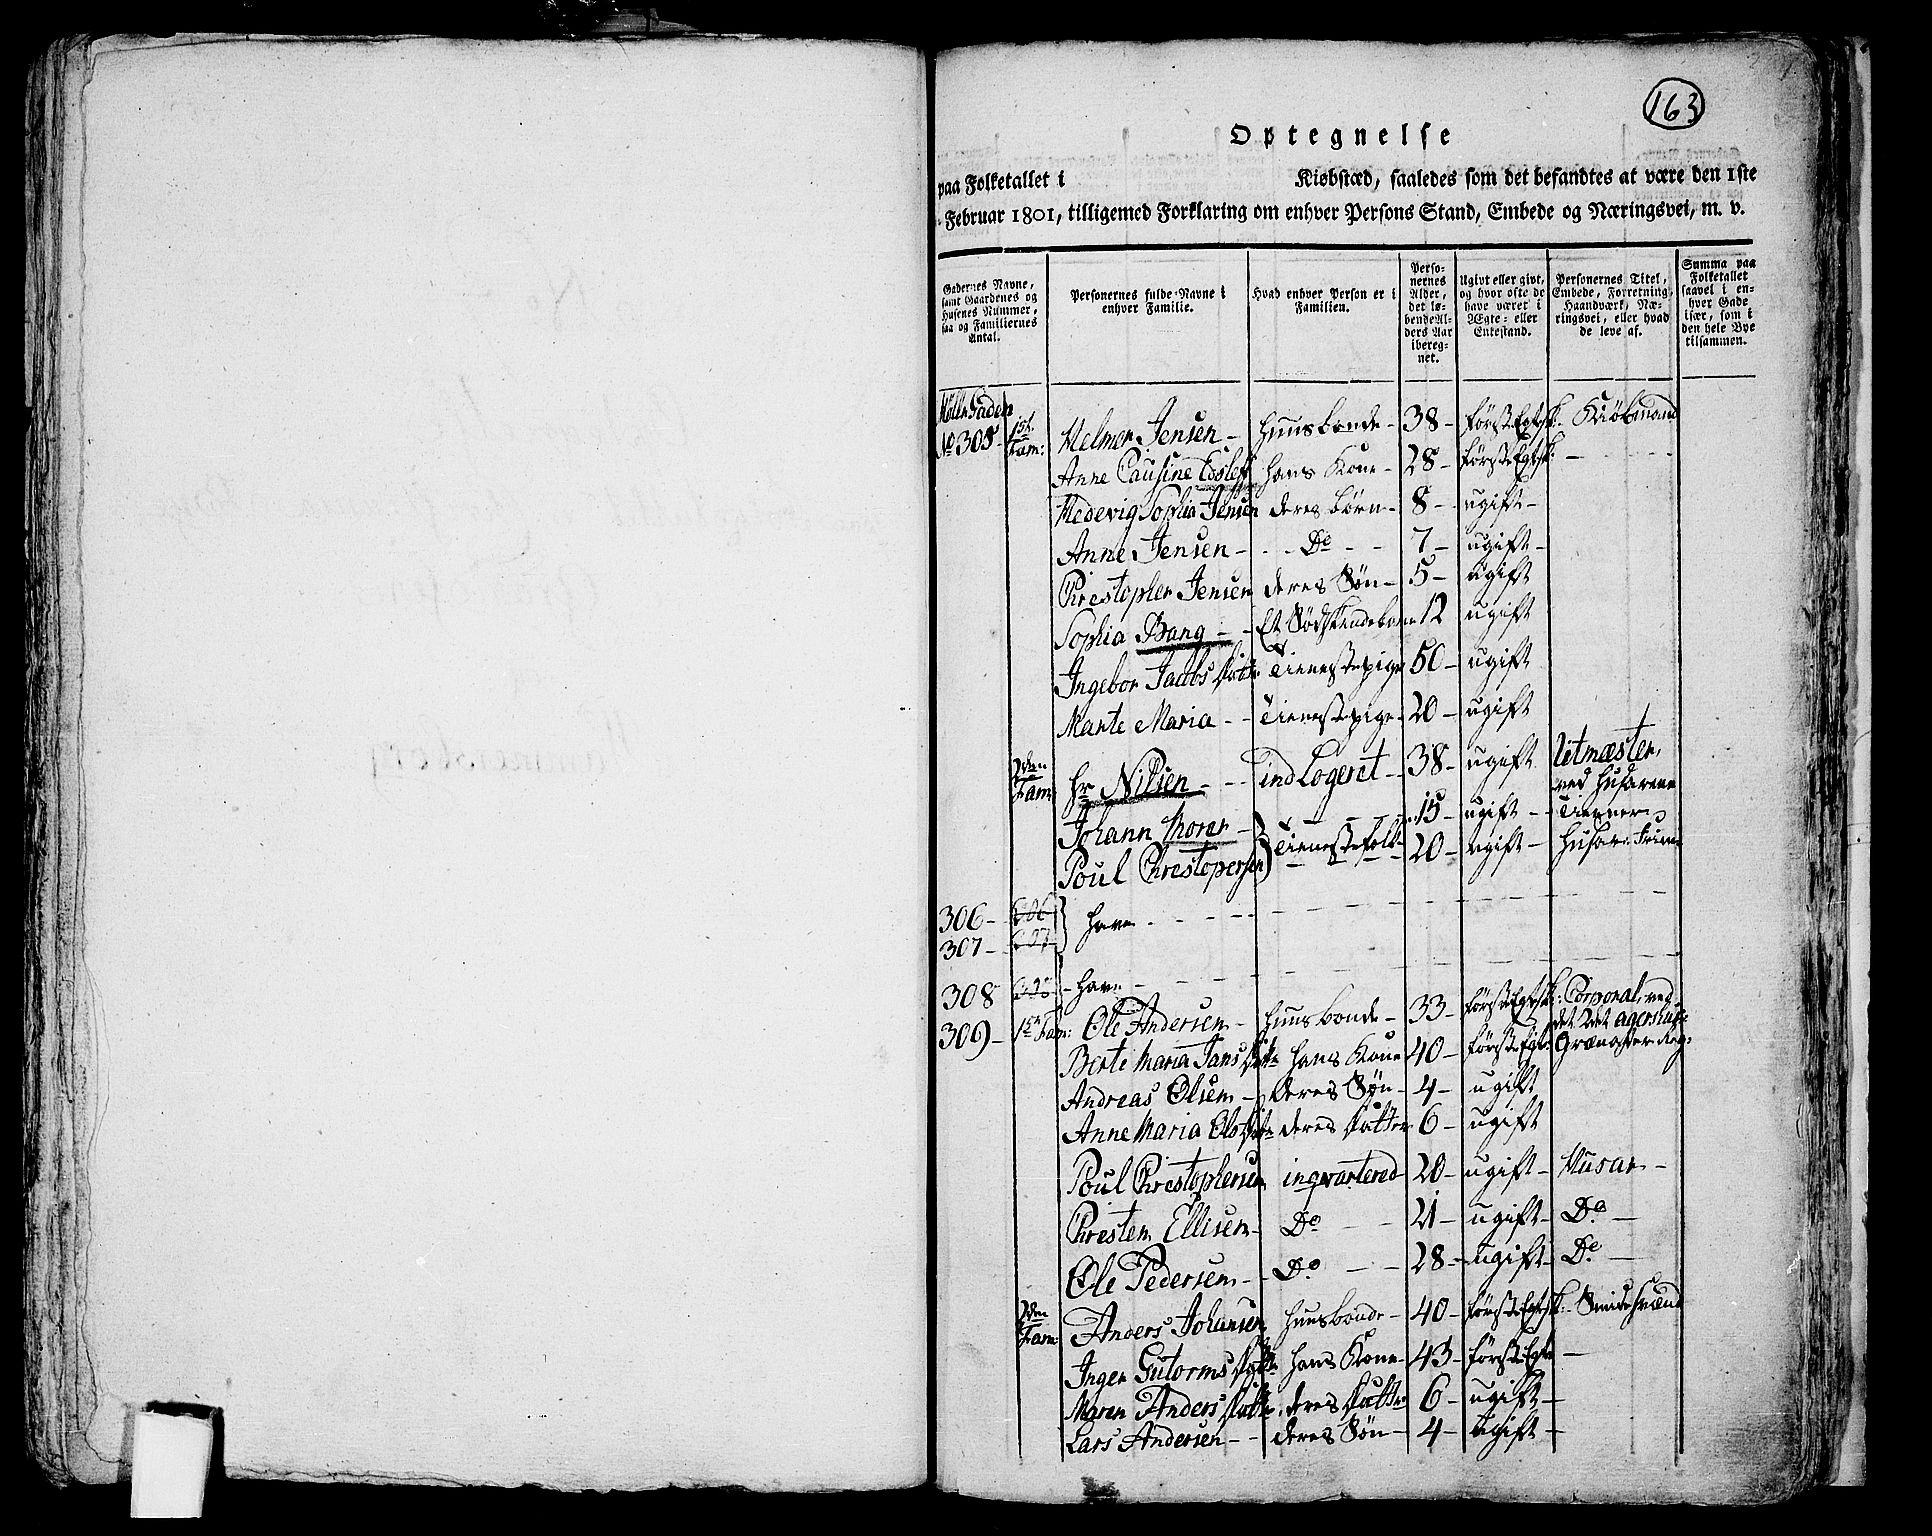 163
Optegnelse
paa Folketallet i Kiøbstæd, saaledes som det befandtes at være den 1ste
Februar 1801, tilligemed Forklaring om enhver Persons Stand, Embede og Næringsvei, m. v.
Gadernes Navne, samt Gaardenes og Husenes Nummer, saa og Familiernes Antal.
Personernes fulde Navne i enhver Familie.
Hvad enhver Person er i Familien.
Personernes Alder, det løbende Alders Aar iberegnet.
Ugivt eller givt, og hvor ofte de have været i Ægte- eller Enkestand.
Personernes Titel, Embede, Forretning, Haandværk, Næringsvei, eller hvad de leve af.
Summa paa Folketallet saavel i enhver Gade især, som i den hele Bye tilsammen.
No 305 1ste Fam: Helmer Jensen - Huusbonde - 38 - første Egtsk. Kiøbmand
Anne Causine hans Kone - 28 - første Egtsk: -
Hedevig Sophia Jensen deres børn - 8 - ugift -
Anne Jensen - Do - 7 - ugift -
Chrestopher Jensen deres Søn - 5 - ugift
Sophia Bang - Et 12 ugift
Ingebor Jacobs Tienestepige 50 - ugift
Marte Maria - Tienestepige - 20 - ugift
2den Fam: Hr Nilsen - ind Logeret - 38 - ugift
ved Husarene
Johann 15 - ugift - Tienner
Poul Chrestopersen Tienestefolk 20 - ugift -
306 - have
307 -
308 - have -
309 - 1ste Fam: Ole Andersen - Huusbonde - 33 - første Egtsk: Corporal, ved
det 2det
Berte Maria Jans hans Kone 40 - første
Andreas Olsen - deres Søn - 4 - ugift
Anne Maria Ols deres datter 6 - ugift
Poul Chrestophersen inqvartered 20 - ugift - Husar -
Chresten Ellisen - Do - 21 - ugift - Do -
Ole Pedersen - Do - 28 - ugift - Do -
2den Fam: Anders Johansen Huusbonde - 40 - første Egtsk. Smidesvend
Inger Gutorms hans Kone - 43 - første -
Maren Anders deres 6 - ugift -
Lars Andersen - deres Søn - 4 - ugift -